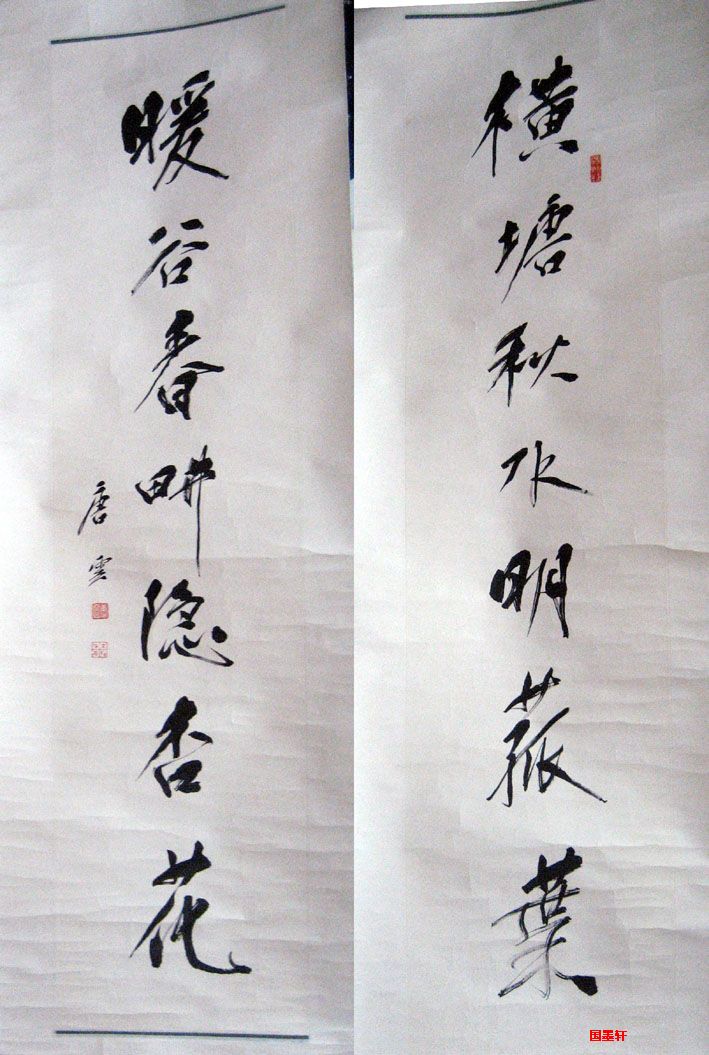 横塘秋水明菰葉
暖谷春畊隐杏花
唐雲
国墨轩